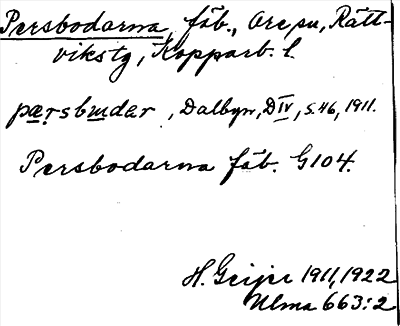 Persbodarna, fäb., Ore sn, Rätt-
vikstg, Kopparb. l.
pærsbɯdar, Dalbyn, D IV, s. 46, 1911.
Persbodarna fäb. G104.
H. Geijer 1911, 1922
Ulma 663:2